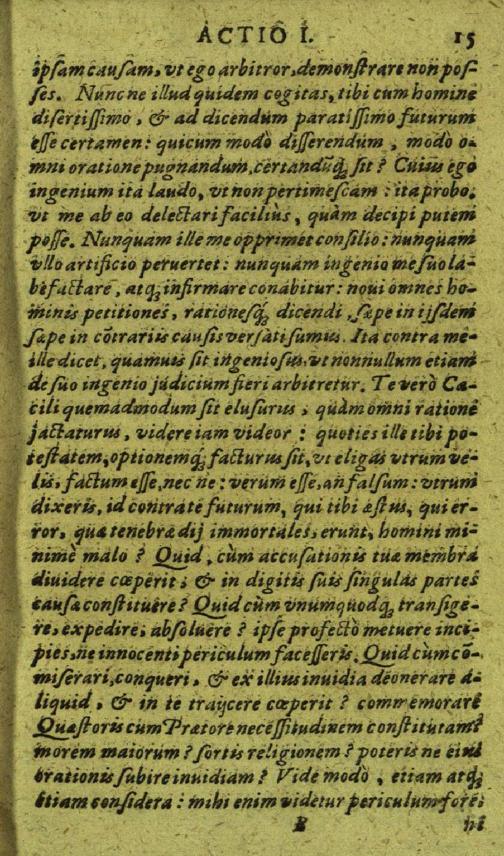 ACTIO I. 15
ipsam causam, vt ego arbitror, demonstrare non pos-
ses. Nunc ne illud quidem cogitas, tibi cum homine
disertissimo, & ad dicendum paratissimo futurum
esse certamen: quicum modò disserendum, modò o-
mni oratione pugnandum, certandũq; sit? Cuius ego
ingenium ita laudo, vt non pertimescam: ita probo,
vt me ab eo delectari faciliùs, quàm decipi putem
posse. Nunquam ille me opprimet consilio: nunquam
vllo artificio peruertet: nunquam ingenio me suo la-
befactare, atq; infirmare conabitur: noui omnes ho-
minis petitiones, rationesq; dicendi, sæpe in ijsdem
sæpe in cõtrariis causis versati sumus. Ita contra me
ille dicet, quamuis sit ingeniosus, vt nonnullum etiam
de suo ingenio judicium fieri arbitretur. Te verò Cæ-
cili quemadmodum sit elusurus, quàm omni ratione
jactaturus, videre iam videor: quoties ille tibi po-
testatem, optionemq; facturus sit, vt eligas vtrum ve-
lis, factum esse, nec ne: verum esse, an falsum: vtrum
dixeris, id contra te futurum, qui tibi æstus, qui er-
ror, quæ tenebræ dij immortales, erunt, homini mi-
nimè malo? Quid, cùm accusationis tuæ membra
diuidere cœperit, & in digitis suis singulas partes
causæ constituere? Quid cùm vnumquodq; transige-
re, expedire, absoluere? ipse profectò metuere inci-
pies, ne innocenti periculum facesseris. Quid cùm cõ-
miserari, conqueri, & ex illius inuidia deonerare a-
liquid, & in te traijcere cœperit? commemorare
Quæstoris cum Prætore necessitudinem constitutam?
morem maiorum? sortis religionem? poteris ne eius
orationis subire inuidiam? Vide modò, etiam atq;
etiam considera: mihi enim videtur periculum fore,
B ne